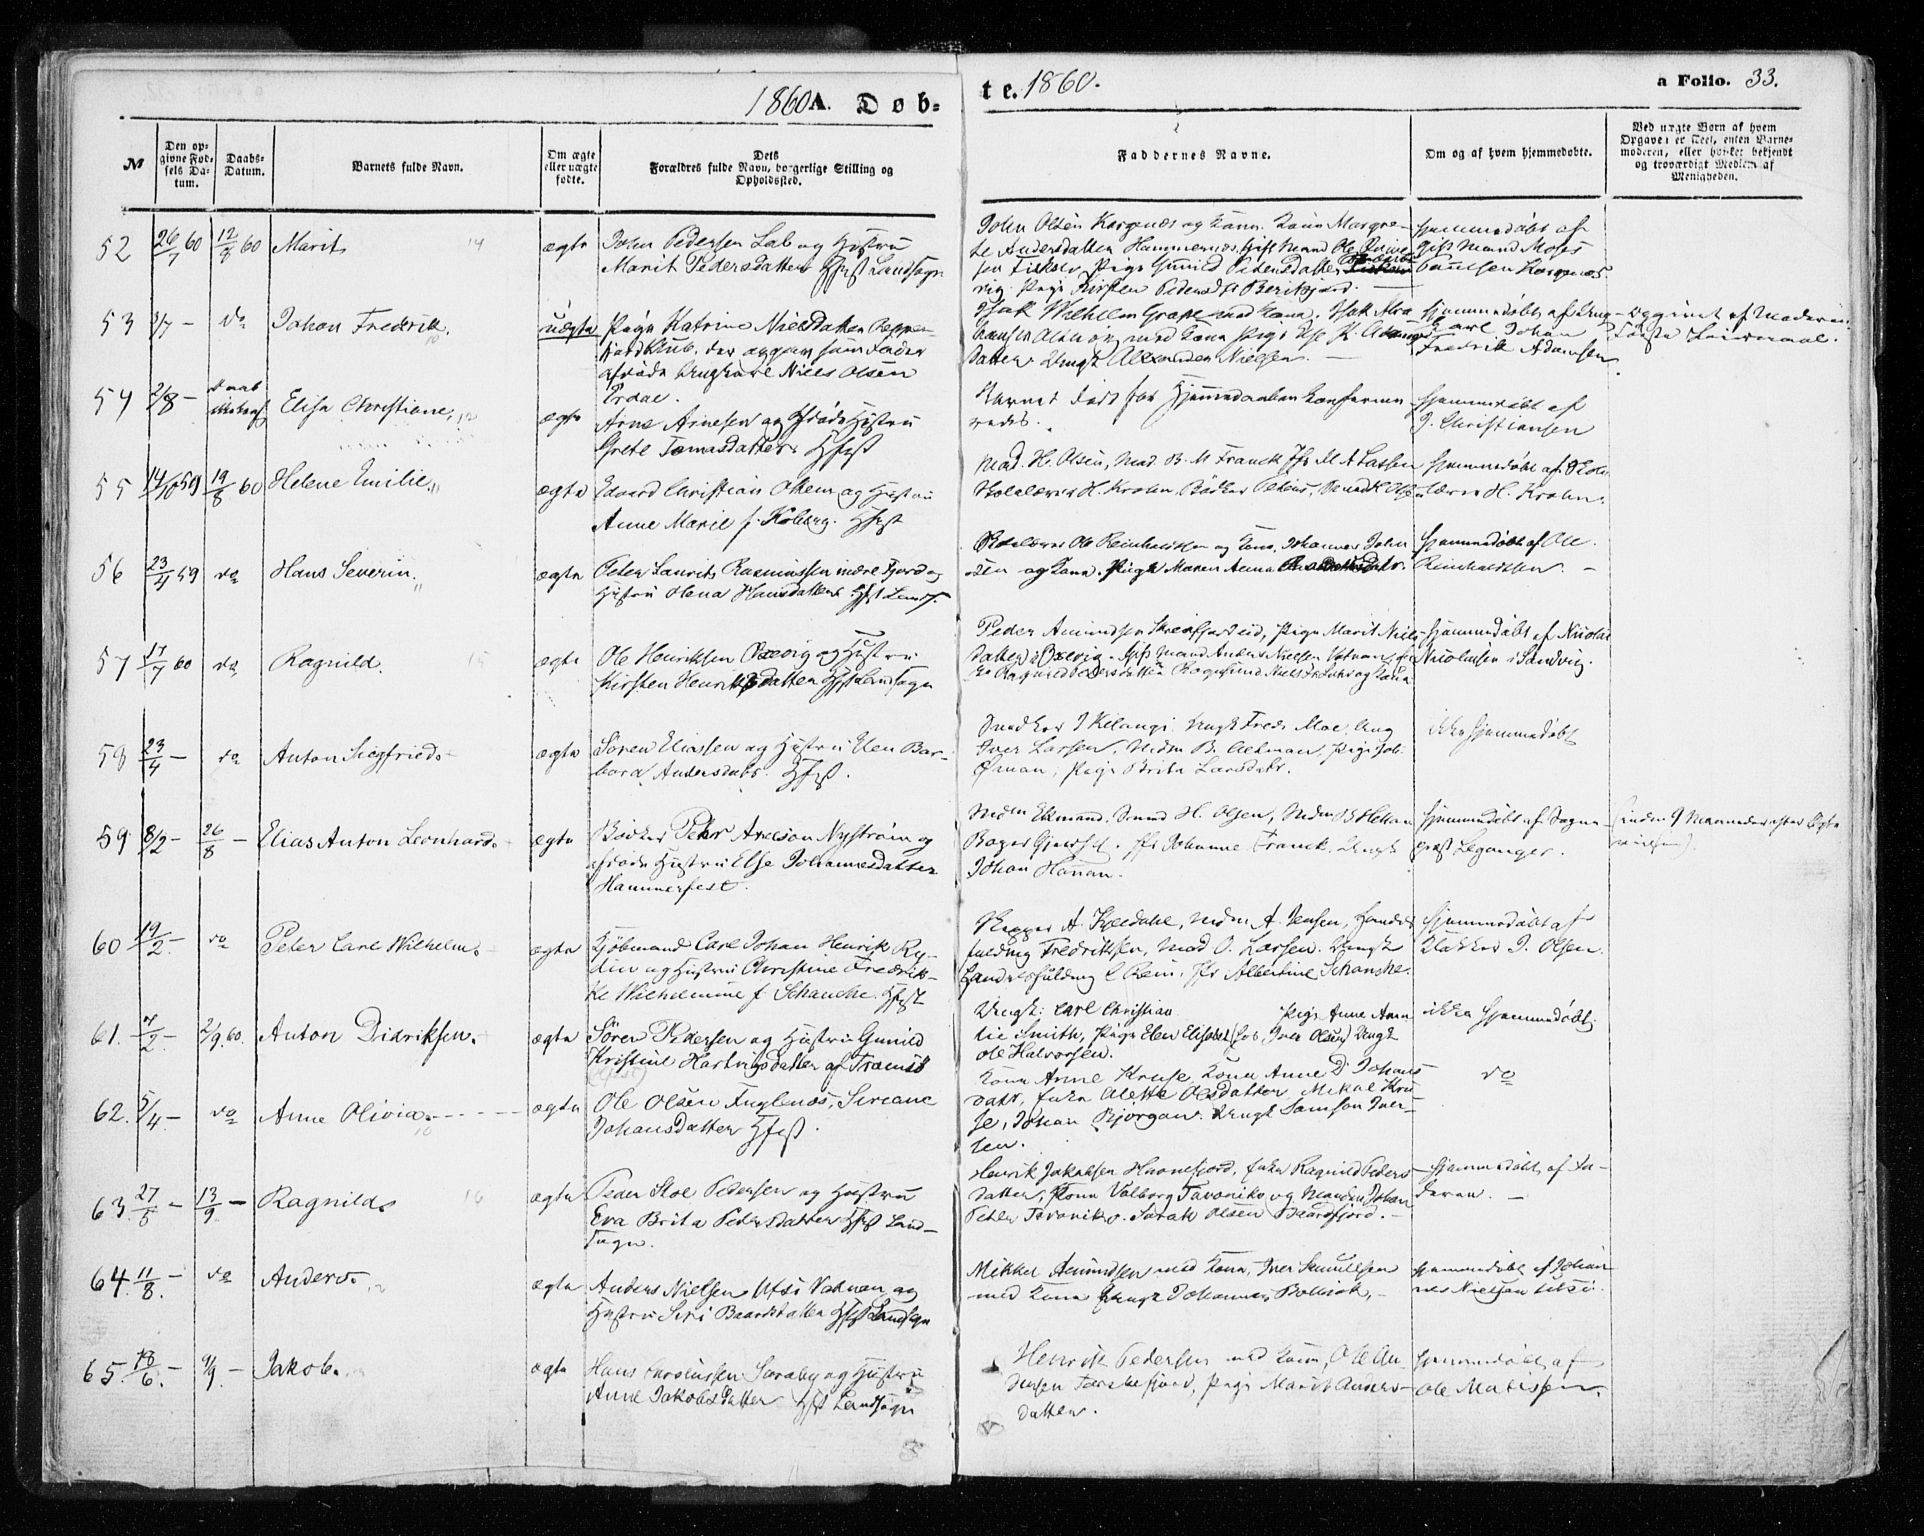 1860 A. Døb-
te. 1860.
a Folio. 33.
№
Den op-
givne Fød-
sels Da-
tum.
Daabs-
Datum.
Barnets fulde Navn.
Om ægte
eller uægte
fødte.
Dets
Forældres fulde Navn, borgerlige Stilling og
Opholdssted.
Faddernes Navne.
Om og af hvem hjemmedøbte.
Ved uægte Børn af hvem
Opgaven er skeet, enten Barne-
moderen, eller hvilket bekjendt
og troværdigt Medlem af
Menigheden.
52 26/7 60 12/8 60 Marit 14 ægte John Pedersen Lab og Hustru
Marit Pedersdatter Hfest Landsogn
John Olsen Kargenæs og Kone. Kone Margre-
te Andersdatter Hammernæs, Gift Mand Ole
sen Pige Gunild Pedersdatter
vig. Pige Kirsten Pedersdt
hjemmedøbt af
Gift Mand Moses
Poulsen Kargenæs
53 3/7 - do Johan Frederik. 10 uægte Pige Katrine Nielsdatter Repper-
fjord Klub, der opgav som Fader
afdøde Ungkarl Niels Olsen
Ordal.
Isak Wilhelm Grape med Kone, Isak Abra
hamsen med Kone Pige Else
datter Ungk Alexander Nielsen.
hjemmedøbt af Ung-
Carl Johan
Fredrik Adamsen
opgivet af Moderen
første Leiermaal.
54 2/8 - Elisa Christiane, 12 ægte Arne Arnesen og Hustru
Grete Tomasdatter Hfest
Barnet død før Hjemmedaaben Konfirme-
redes.
hjemmedøbt af
J. Christiansen
55 14/10 59 19/8 60 Helene Emilie " ægte Edvard Christian Olsen og Hustru
Anne Marie f. Koberg. Hfest
Mad. H. Olsen, Mad. B. M Franck Jfr M A Lassen
Skolelærer H. Krohn, Bødker
hjemmedøbt af Skole
lærer H. Krohn.
56 23/4 59 do Hans Severin. " ægte Peter Laurits Rasmussen indre Fjord og
Hustru Elena Hansdatter Hfst Lands.
Skolelærer Ole Reinholdtsen og Kone, Johannes John
sen og Kone. Pige Maren Anna
hjemmedøbt af Ole
Reinholdtsen. -
57 17/7 60 do Ragnild. 15 ægte Ole Henriksen Oxevig og Hustru
Kirsten Henriksdatter Hfst Landsogn
Peder Amundsen Skreifjordeid, Pige Marit Niels-
datter i Oxevig. Gift Mand Anders Nielsen Vatnan,
hjemmedøbt af Nicolai
Nicolaisen i Sandvig.
58 23/4 - do Anton Siegfried. ægte Søren Eliassen og Hustru Elen Bar-
bara Andersdatr. Hfest.
Snedker J Kilangi. Ungk Fredr. Moe, Ung
Iver Larsen, Mdm B. Pige Joh.
Örman, Pige Brita Larsdatr.
ikke hjemmedøbt
59 8/2 - 26/8 - Elias Anton Leonhard. ægte Bødker Pehr Axelson Nystrøm og
afdøde Hustru Else Johannesdatter
Hammerfest.
Mdm Ekmand. Smed H. Olsen,
Bager Jfr Johanne Franck. Ungk
Johan Homan.
hjemmedøbt af Sogne-
præst Leganger.
(inden 9 Maaneder efter Ægte
vielsen)
60 19/2 - do Peter Carl Wilhelm. ægte Kjøbmand Carl Johan Henrik Ry-
din og Hustru Christine Fredrik-
ke Wilhelmine f. Schancke. Hfest
Skipper A. Mdm A. Jensen, Handels
fuldmg Fredriksen, Mad O. Larsen. Ungk
Handelsfuldmg C Rein, Jfr Albertine Schancke.
hjemmedøbt af
Klokker J. Olsen.
61. 7/2 - 2/9 60. Anton Didriksen. ægte Søren Pedersen og Hustru Gunild
Kristine Hartvigsdatter af Tromsø
Ungk: Carl Christian Pige Anne Am
lie Smith, Pige Elen Elisabet Iver Olsen, Ungk
Ole Halvorsen.
ikke hjemmedøbt.
62. 5/4 - do Anne Olivia. 10 ægte Ole Olsen Fuglenæs, Siriane
Johansdatter Hfest.
Kone Anne Kruse Kone Anne D. Johans
datr, Enke Alette Olsdatter, Mikal Kru
se, Johan Bjørgan. Ungk Samson Iver-
sen.
do
63. 27/5 - 13/9 - Ragnild. 16 ægte Peder Stoe Pedersen og Hustru
Eva Brita Pedersdatter Hfest Land-
sogn.
Henrik Jakobsen Havnefjord, Enke Ragnild Peders
datter, Kone Valborg Tavoniko og Manden Johan
Peder Tavoniko. Sarah Olsen Baardfjord. -
hjemmedøbt af Fa-
deren. -
64. 11/8. - do Anders. ægte Anders Nielsen Utsi Vatnan og
Hustru Siri Baardsdatter Hfst Landsogn
Mikkel Amundsen med Kone, Iver Samuelsen
med Kone Ungk Johannes
hjemmedøbt af Johan
nes Nielsen Utsi.
65. 18/6. - 9/9 - Jakob. ægte Hans Saraby og Hustru
Anne Jakobsdatter Hfst Landsogn
Henrik Pedersen med Kone, Ole An
dersen Torskefjord, Pige Marit Anders-
datter.
hjemmedøbt af
Ole Mathisen.